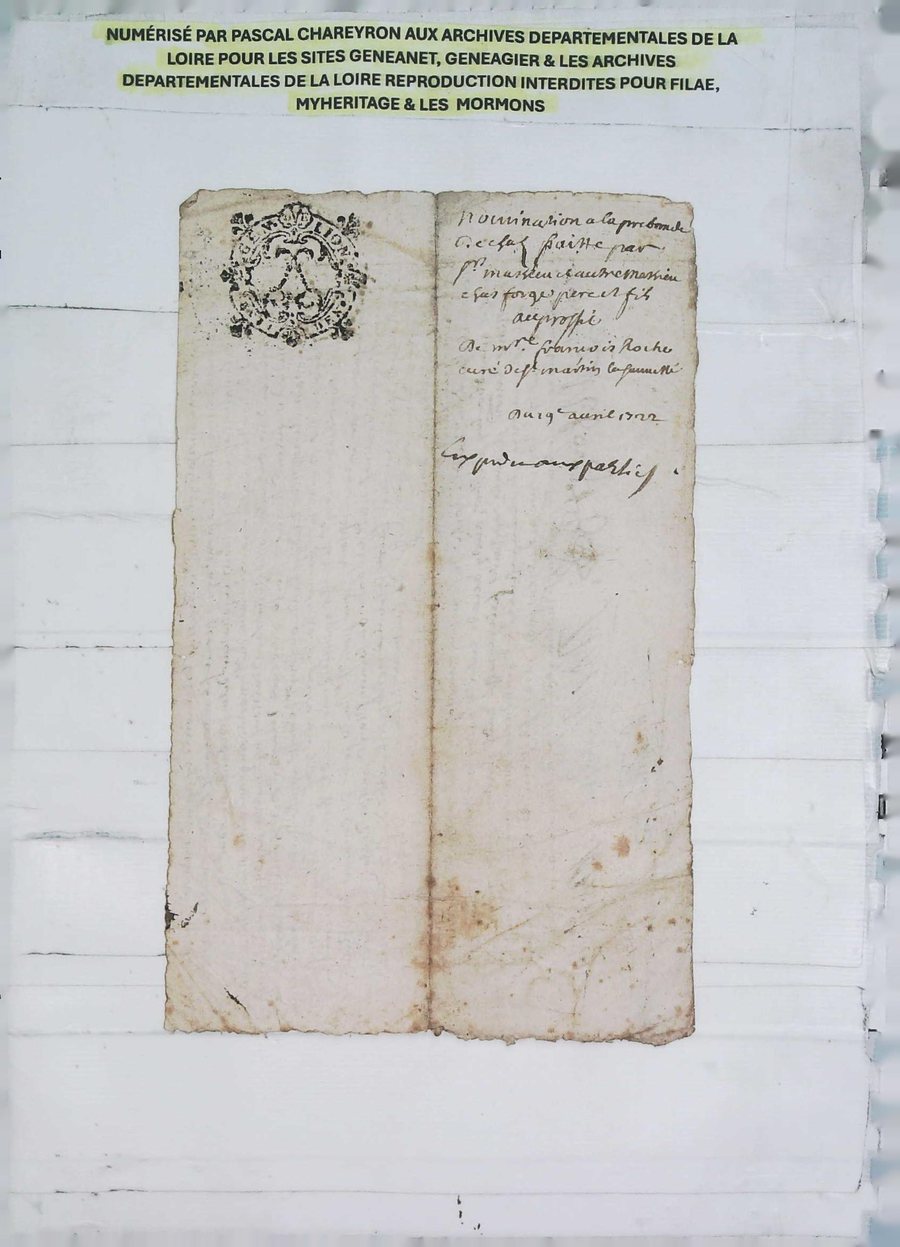 NUMÉRISÉ PAR PASCAL CHAREYRON AUX ARCHIVES DEPARTEMENTALES DE LA
LOIRE POUR LES SITES GENEANET, GENEAGIER & LES ARCHIVES
DEPARTEMENTALES DE LA LOIRE REPRODUCTION INTERDITES POUR FILAE,
MYHERITAGE & LES MORMONS
GEN LION
Nomination a la prebande
faitte par
mathieu et autre mathieu
forge pere et fils
au proffit
De mre francois Roche
curé de st martin
Du 19e avril 1722
Expedié aux parties